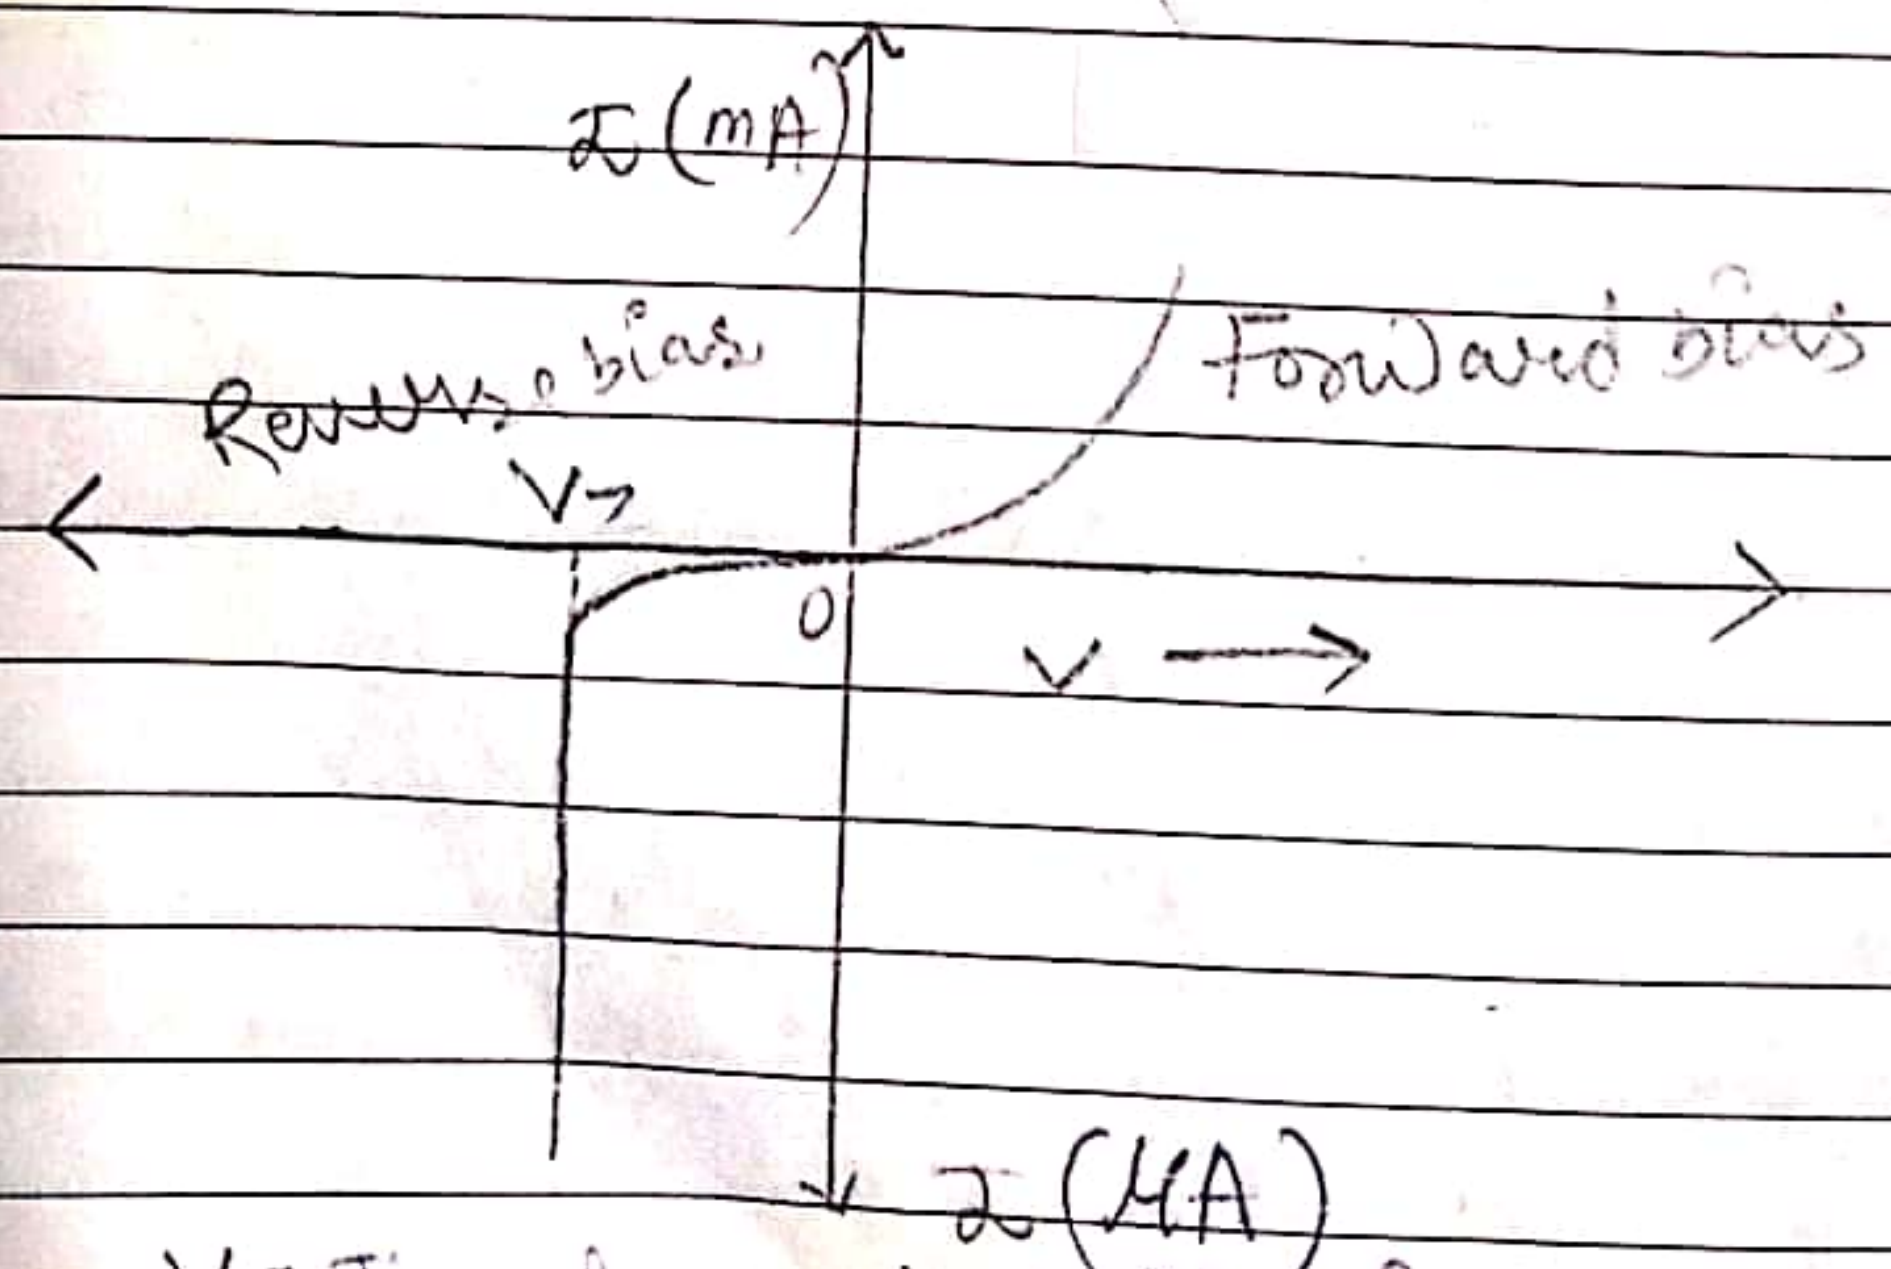 I (mA)
Reverse bias
Forward bias
Vz
0
V →
I (μA)